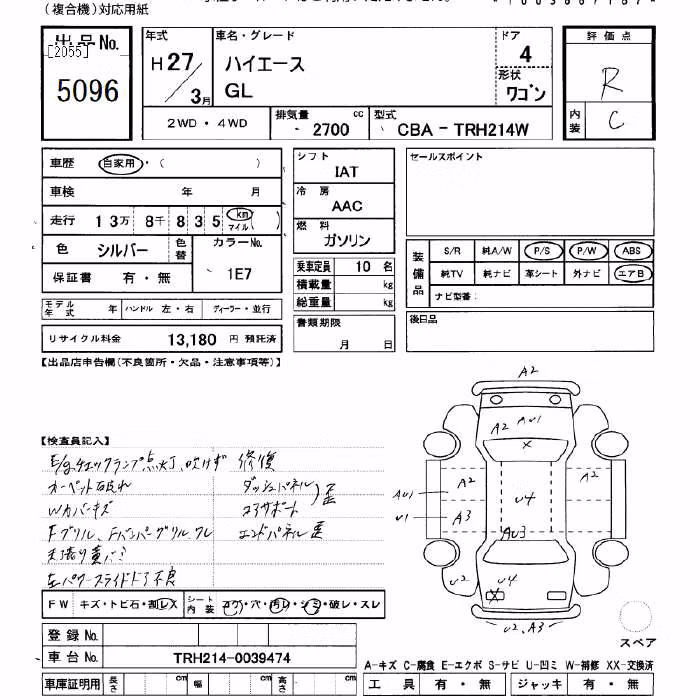 (複合機)対応用紙
出品No.
[2055]
5096
年式
H27/3月
車名・グレード
ハイエース
GL
ドア
4
形状
ワゴン
評価点
R
内装
C
2WD・4WD
排気量
2700 cc
型式
CBA - TRH214W
車歴 自家用・( )
車検 年 月
走行 13万 8千 8 3 5 km マイル ( )
色 シルバー 色替 カラーNo.
保証書 有・無 1E7
モデル年式 年 ハンドル 左・右 ディーラー・並行
リサイクル料金 13,180 円 預託済
シフト
IAT
冷房
AAC
燃料
ガソリン
乗車定員 10 名
積載量 kg
総重量 kg
書類期限
月 日
セールスポイント
装備品
S/R 純A/W P/S P/W ABS
純TV 純ナビ 革シート 外ナビ エアB
ナビ型番:
後日品
【出品店申告欄(不良箇所・欠品・注意事項等)】
【検査員記入】
E/gチェックランプ点灯、吹けず 修復
カーペット破れ ダッシュパネル
Wカバーキズ コアサポート 歪
Fグリル、Fバンパーグリルワレ エンドパネル歪
天張り黄バミ
左パワースライドドア不良
A2
A2 AU1
X
A2 A2
AU1 U4
U1 A3
AU3
U2 U4
X
U2、A3
スペア
FW キズ・トビ石・割レX シート内装 コゲ・穴・汚レ・シミ・破レ・スレ
登録No.
車台No. TRH214-0039474
車庫証明用 長さ cm 幅 cm 高さ cm
A-キズ C-腐食 E-エクボ S-サビ U-凹ミ W-補修 XX-交換済
工具 有・無 ジャッキ 有・無